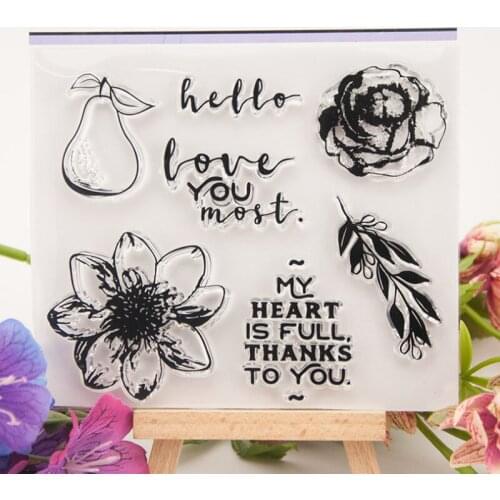 hello
love
YOU
most.
~
MY
HEART
IS FULL,
THANKS
TO YOU.
~